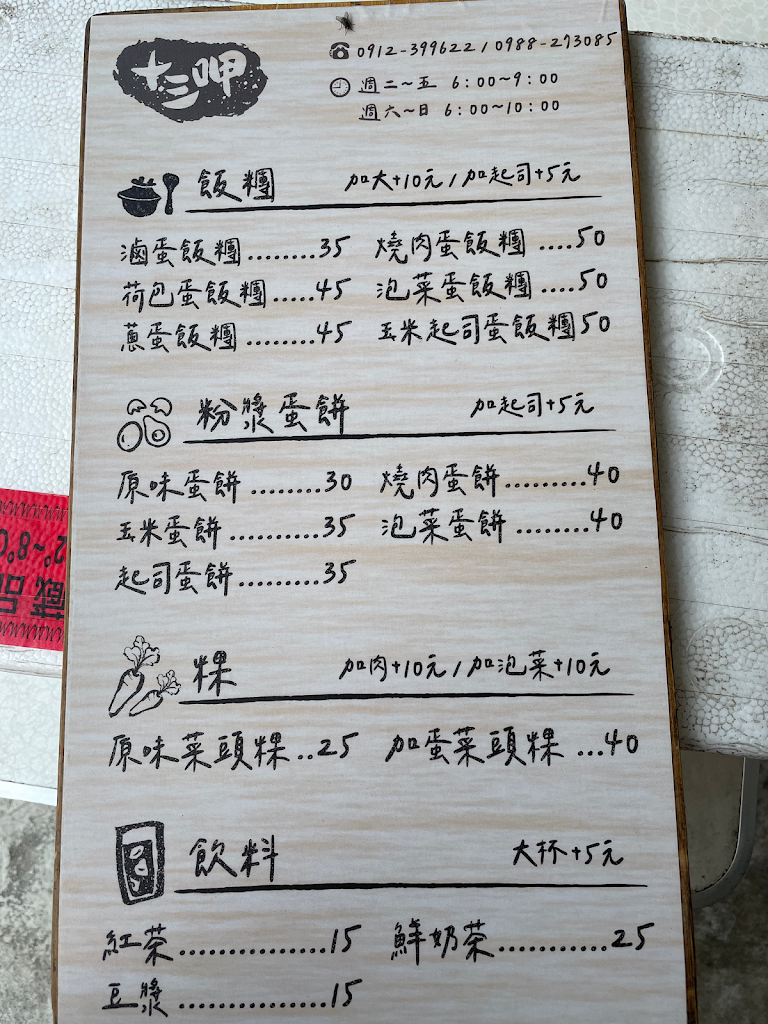 十三呷
0912-399622 / 0988-273085
週二～五 6:00～9:00
週六～日 6:00～10:00
飯糰 加大+10元 / 加起司+5元
滷蛋飯糰.........35 燒肉蛋飯糰....50
荷包蛋飯糰.....45 泡菜蛋飯糰....50
蔥蛋飯糰.........45 玉米起司蛋飯糰50
粉漿蛋餅 加起司+5元
原味蛋餅.........30 燒肉蛋餅.........40
玉米蛋餅..........35 泡菜蛋餅.........40
起司蛋餅..........35
粿 加肉+10元 / 加泡菜+10元
原味菜頭粿..25 加蛋菜頭粿...40
飲料 大杯+5元
紅茶................15 鮮奶茶...........25
豆漿................15
2°~8°C
藏品